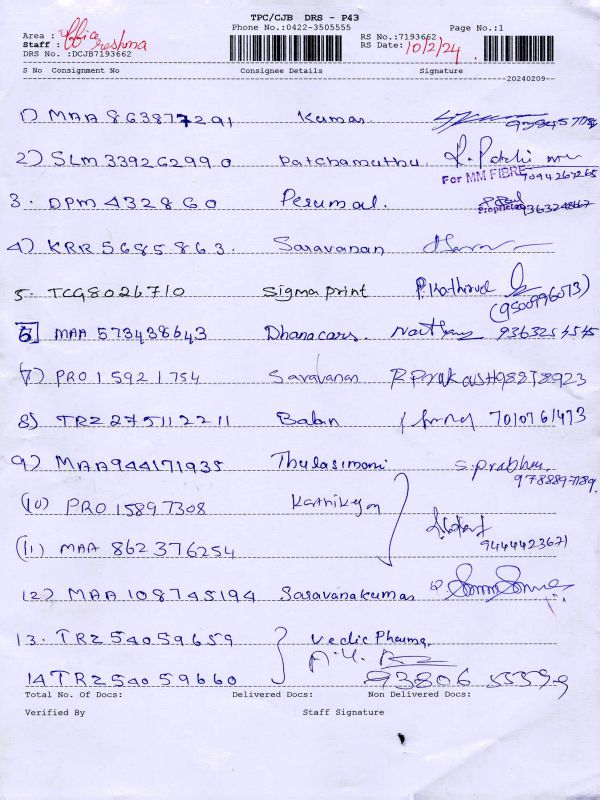 TPC/CJB DRS - P43
Phone No.:0422-3505555 Page No.:1
Area : office RS No.:7193662
Staff : Reshma RS Date: 10/2/24
DRS No. :DCJB7193662
S No Consignment No Consignee Details Signature
20240209
1) MAA 863877291 Kumar
2) SLM 339262990 Patchamuthu R. Patchi
For MM FIBRE 7094267265
3. DPM 432860 Perumal
Proprietor
4) KRR 5685863. Saravanan
5. TCG8026710 Sigma print P. Kathirvel
(9500996073)
6 MAA 573438643 Dhanacars. 9363254545
7) PRO 15921754 Saravanan R Prakash
8) TRZ 275112211 Baban 7010761473
9) MAA944171935 Thulasimani S. Prabhu
9788897189.
(10) PRO 15897308 Karthikeyan
(11) MAA 862376254
9444423671
12) MAA 108745194 Saravanakumar
13. TRZ 54059659 Vedic Pharma
14 TRZ 54059660 93806 55599
Total No. Of Docs: Delivered Docs: Non Delivered Docs:
Verified By Staff Signature